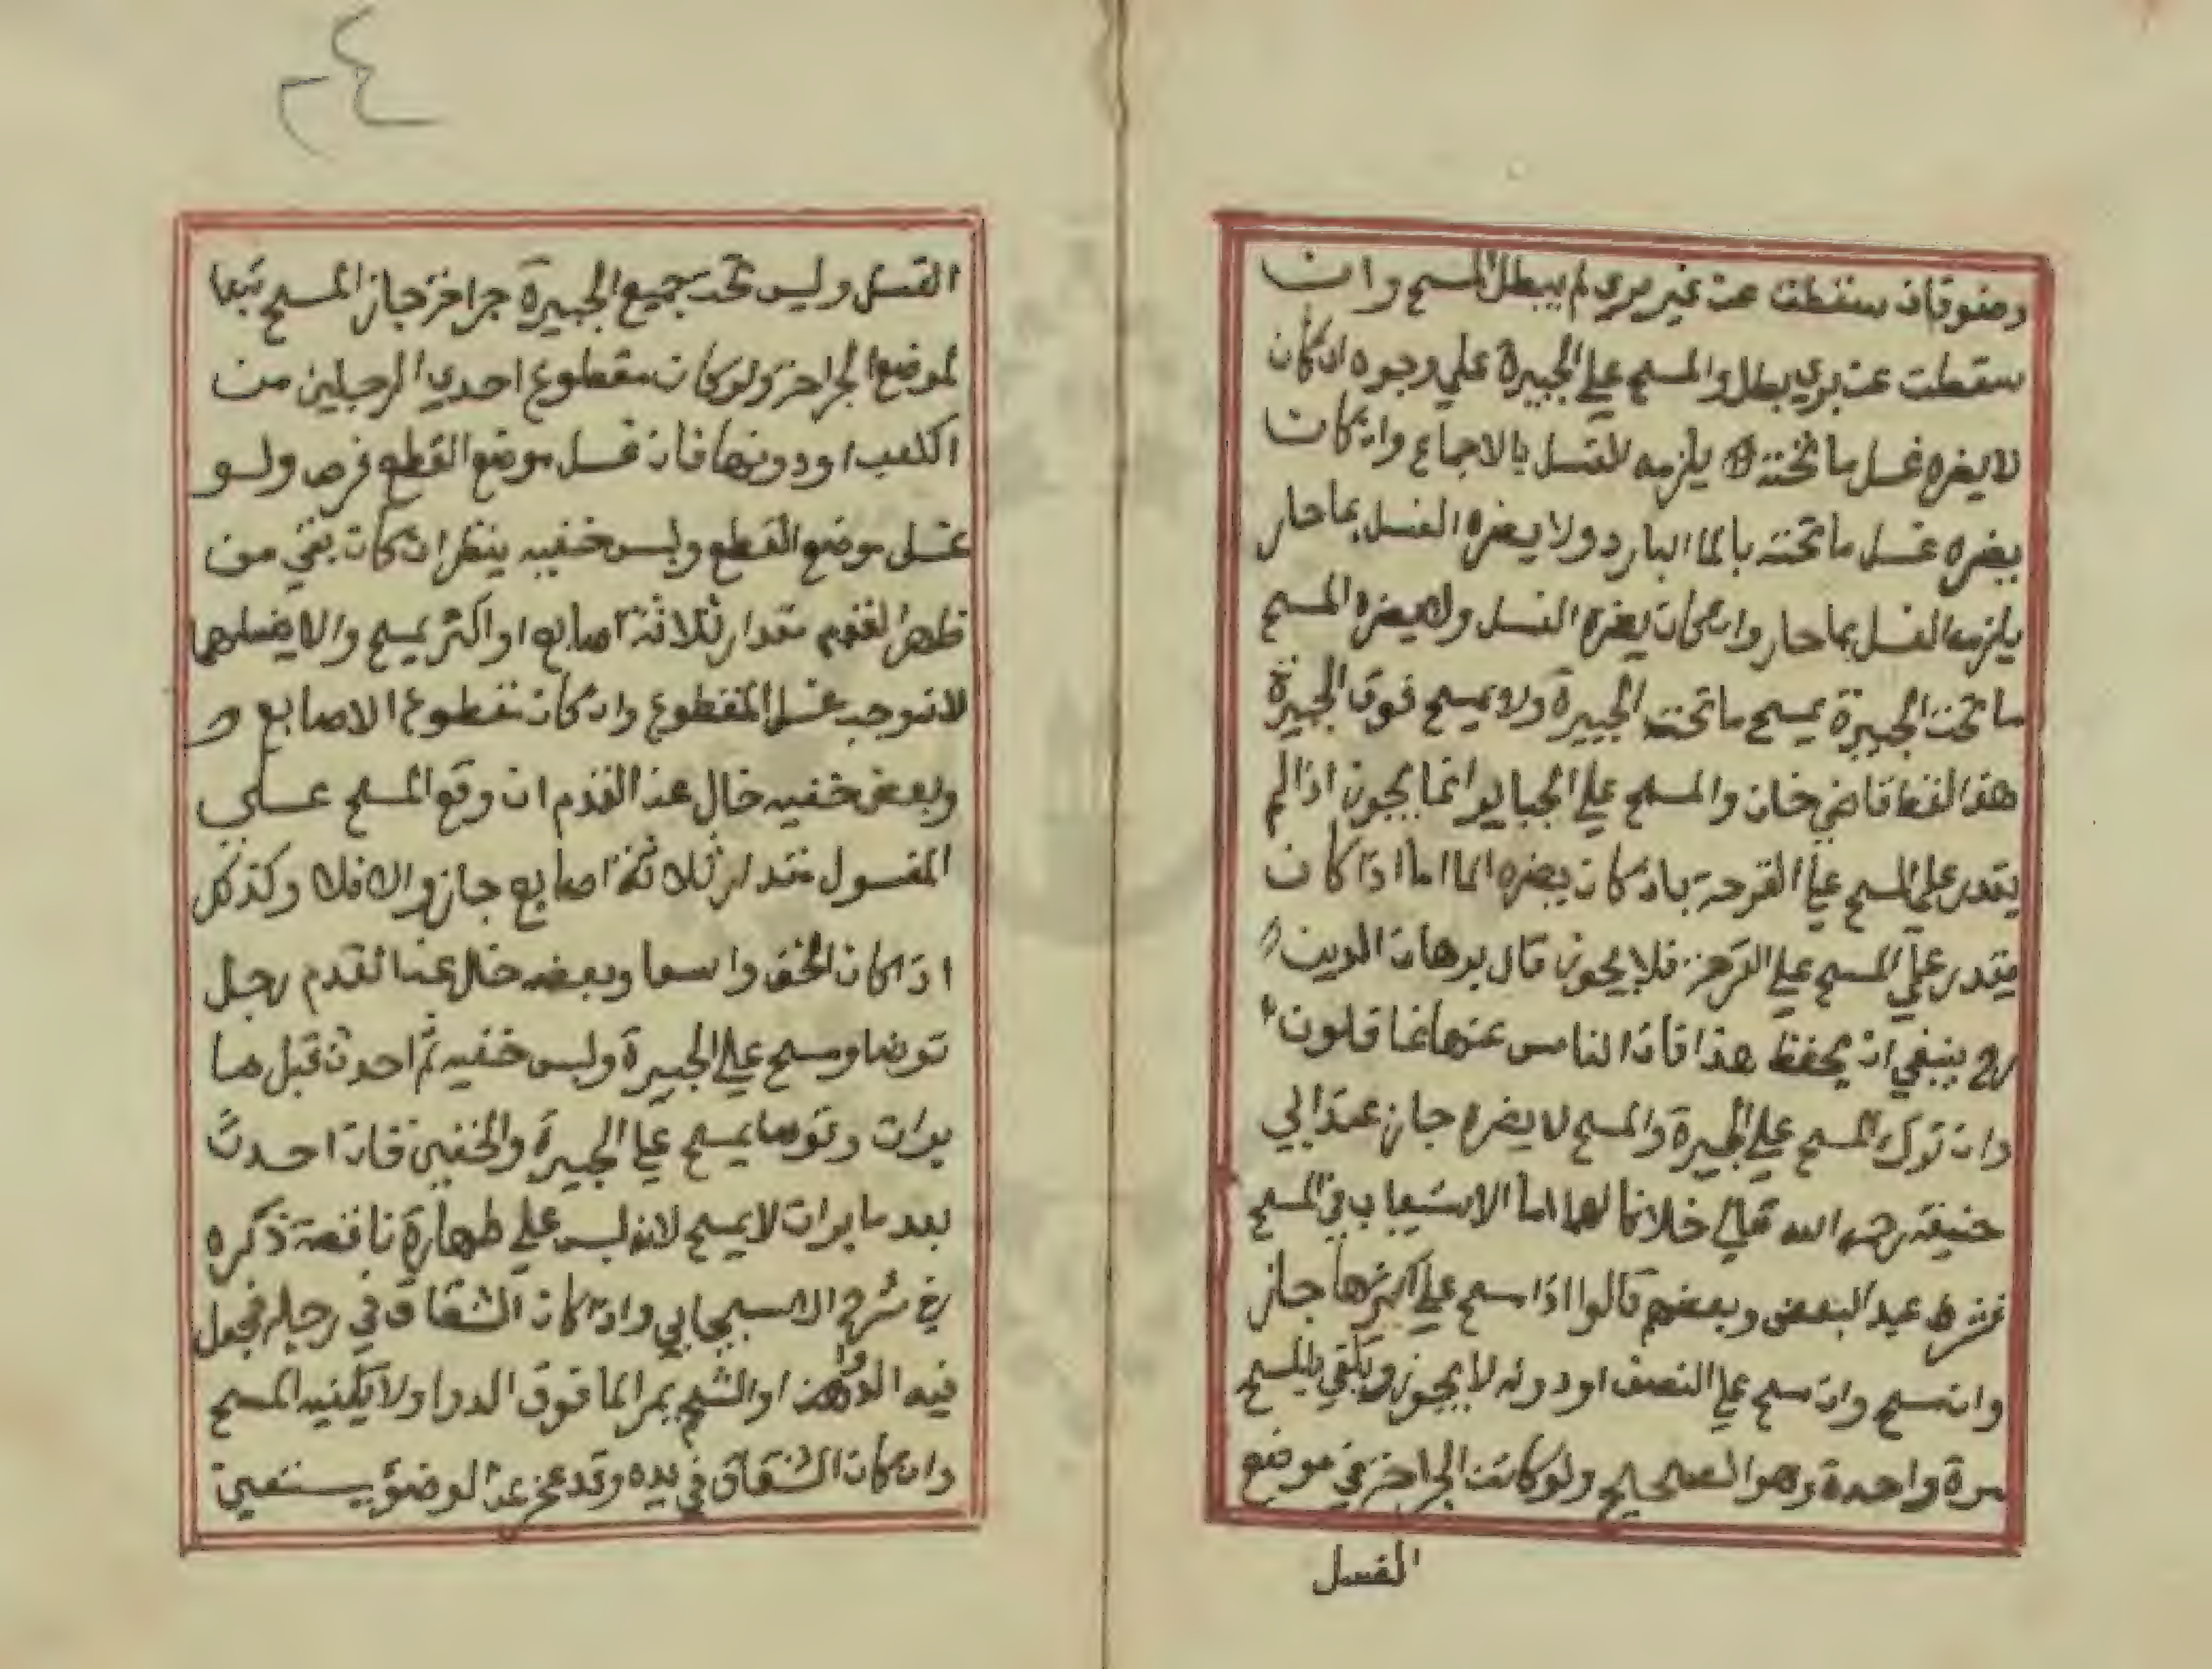 وضو فان سقطت عن غير بري لم يبطل المسح وان
سقطت عن بري بطل والمسح علي الجبيرة علي وجوه ان كان
لا يضره غسل ما تحته يلزمه الغسل بالاجماع وان كان
يضره غسل ما تحته بالما البارد ولا يضره الغسل بما حار
يلزمه الغسل بما حار وان كان يضره الغسل ولا يضره المسح
ما تحت الجبيرة يمسح ما تحت الجبيرة ولا يمسح فوق الجبيرة
هذا لفظ قاضي خان والمسح علي الجباير انما يجوز اذا لم
يقدر علي المسح علي القرحة بان كان يضره الما اما اذا كان
يقدر علي المسح علي القرحة فلا يجوز قال برهان الدين
رح ينبغي ان يحفظ هذا فان الناس عنها غافلون
وان ترك المسح علي الجبيرة والمسح لا يضره جاز عند ابي
حنيفة رحمه الله تعالي خلافا لهما اما الاستيعاب في المسح
فشرط عند البعض وبعضهم قالوا اذا مسح علي اكثرها جاز
وان مسح وان مسح علي النصف او دونه لا يجوز ويكفي بالمسح
مرة واحدة وهو الصحيح ولو كانت الجراحة في موضع
الغسل
٢٤
الغسل وليس تحت جميع الجبيرة جراحة جاز المسح تبعا
لموضع الجراحة ولو كان مقطوع احدي الرجلين من
الكعب او دونها فان غسل موضع القطع فرض ولو
غسل موضع القطع ولبس خفيه ينظر ان كان بقي من
ظهر القدم مقدار ثلاثة اصابع او اكثر يمسح والا يغسلهما
لانه وجب غسل المقطوع وان كان مقطوع الاصابع و
وبعض خفيه خال عن القدم ان وقع المسح علي
المغسول مقدار ثلاثة اصابع جاز والا فلا وكذلك
اذا كان الخف واسعا وبعضه خال عن القدم رجل
توضا ومسح علي الجبيرة ولبس خفيه ثم احدث قبل ما
برات وتوضا يمسح علي الجبيرة والخفين فان احدث
بعد ما برات لا يمسح لانه لبس علي طهارة ناقصة ذكره
في شرح الاسبيجابي واذا كان الشقاق في رجله فجعل
فيه الدواهن او الشحم يمر الما فوق الدوا ولا يكفيه المسح
وان كان الشقاق في يده وقد عجز عن الوضؤ يستعين